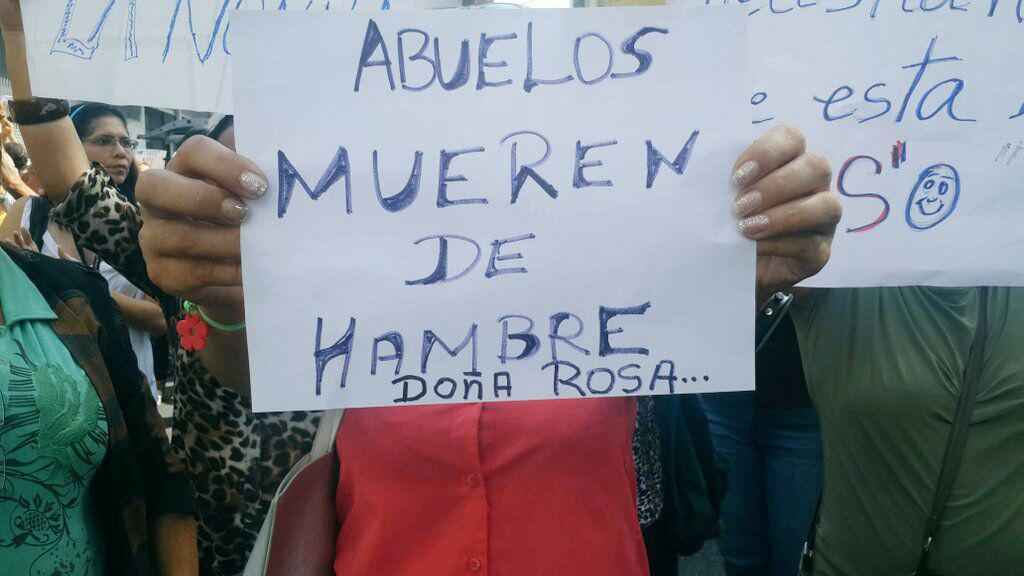 ABUELOS
MUEREN
DE
HAMBRE
DOÑA ROSA...
esta